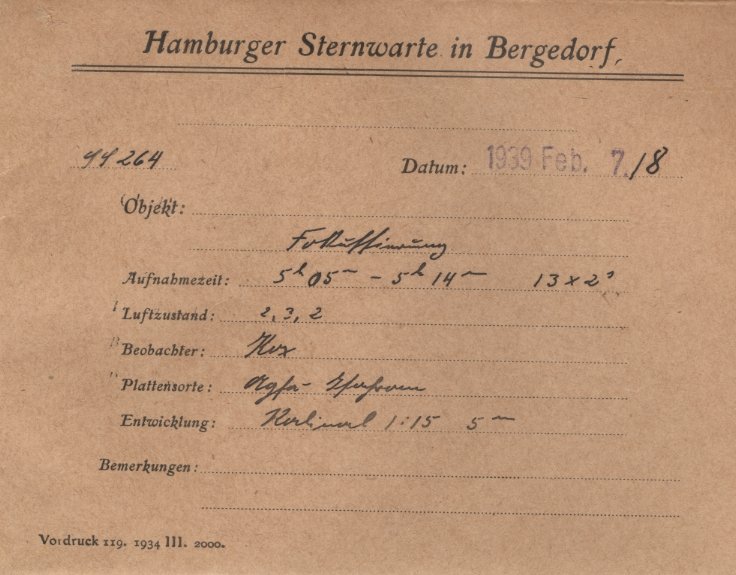 Hamburger Sternwarte in Bergedorf.
264 Datum: 1939 Feb. 7./8
Objekt:
Fokussierung
Aufnahmezeit: 5h 05m – 5h 14m 13 x 2s
Luftzustand: 2, 3, 2
Beobachter:
Plattensorte: Agfa-
Entwicklung: Rodinal 1:15 5m
Bemerkungen:
Vordruck 119. 1934 III. 2000.